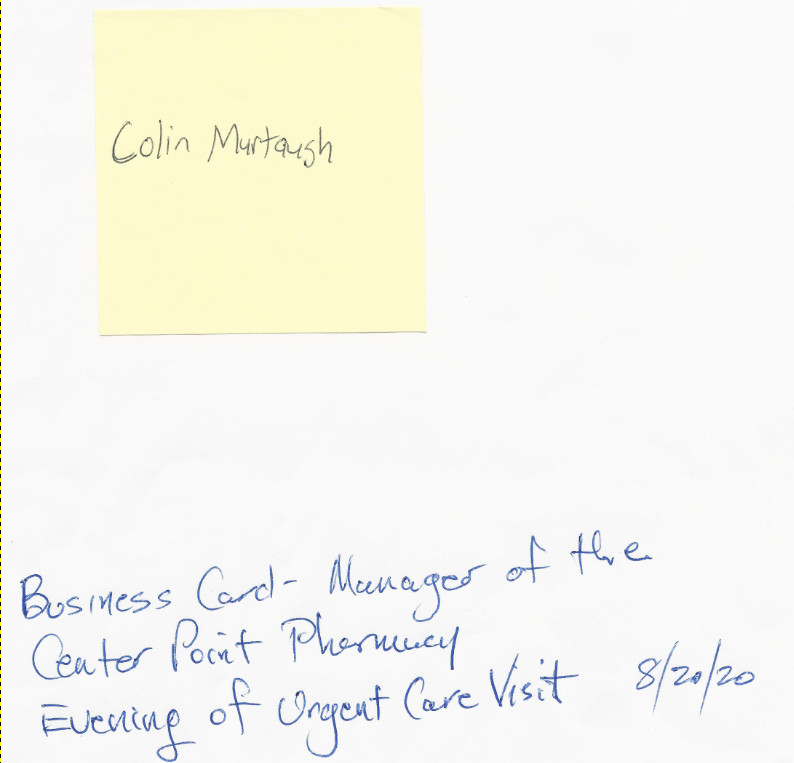 Colin Murtaugh
Business Card - Manager of the
Center Point Pharmacy
Evening of Urgent Care Visit 8/20/20